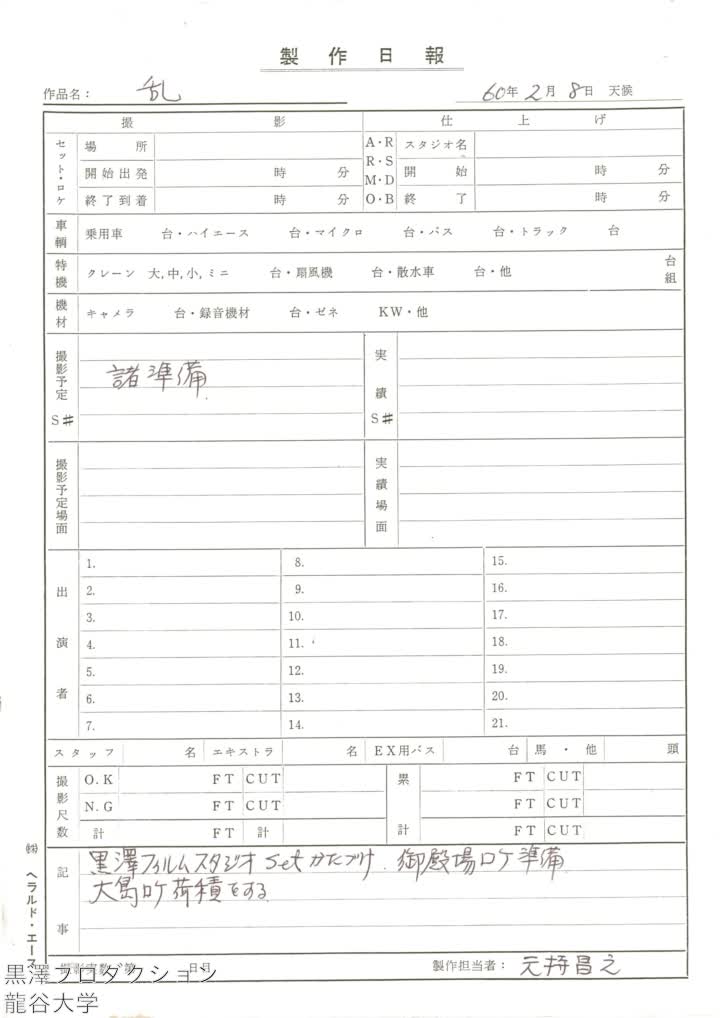 製作日報
作品名： 乱
60年 2月 8日 天候
撮 影 仕 上 げ
セット・ロケ
場 所
A・R スタジオ名
R・S
開始出発 時 分
M・D 開 始 時 分
終了到着 時 分
O・B 終 了 時 分
車輌 乗用車 台・ハイエース 台・マイクロ 台・バス 台・トラック 台
特機 クレーン 大,中,小,ミニ 台・扇風機 台・散水車 台・他 台組
機材 キャメラ 台・録音機材 台・ゼネ KW・他
撮影予定 S# 諸準備 実績 S#
撮影予定場面 実績場面
出演者
1. 8. 15.
2. 9. 16.
3. 10. 17.
4. 11. 18.
5. 12. 19.
6. 13. 20.
7. 14. 21.
スタッフ 名 エキストラ 名 EX用バス 台 馬・他 頭
撮影尺数 O.K FT CUT 累計 FT CUT
N.G FT CUT FT CUT
計 FT 計 FT CUT
記事
黒澤フィルムスタジオ Set かたづけ. 御殿場ロケ準備
大島ロケ荷積をする
撮影実数 第 日目 製作担当者： 元持昌之
㈱ ヘラルド・エース
黒澤プロダクション
龍谷大学